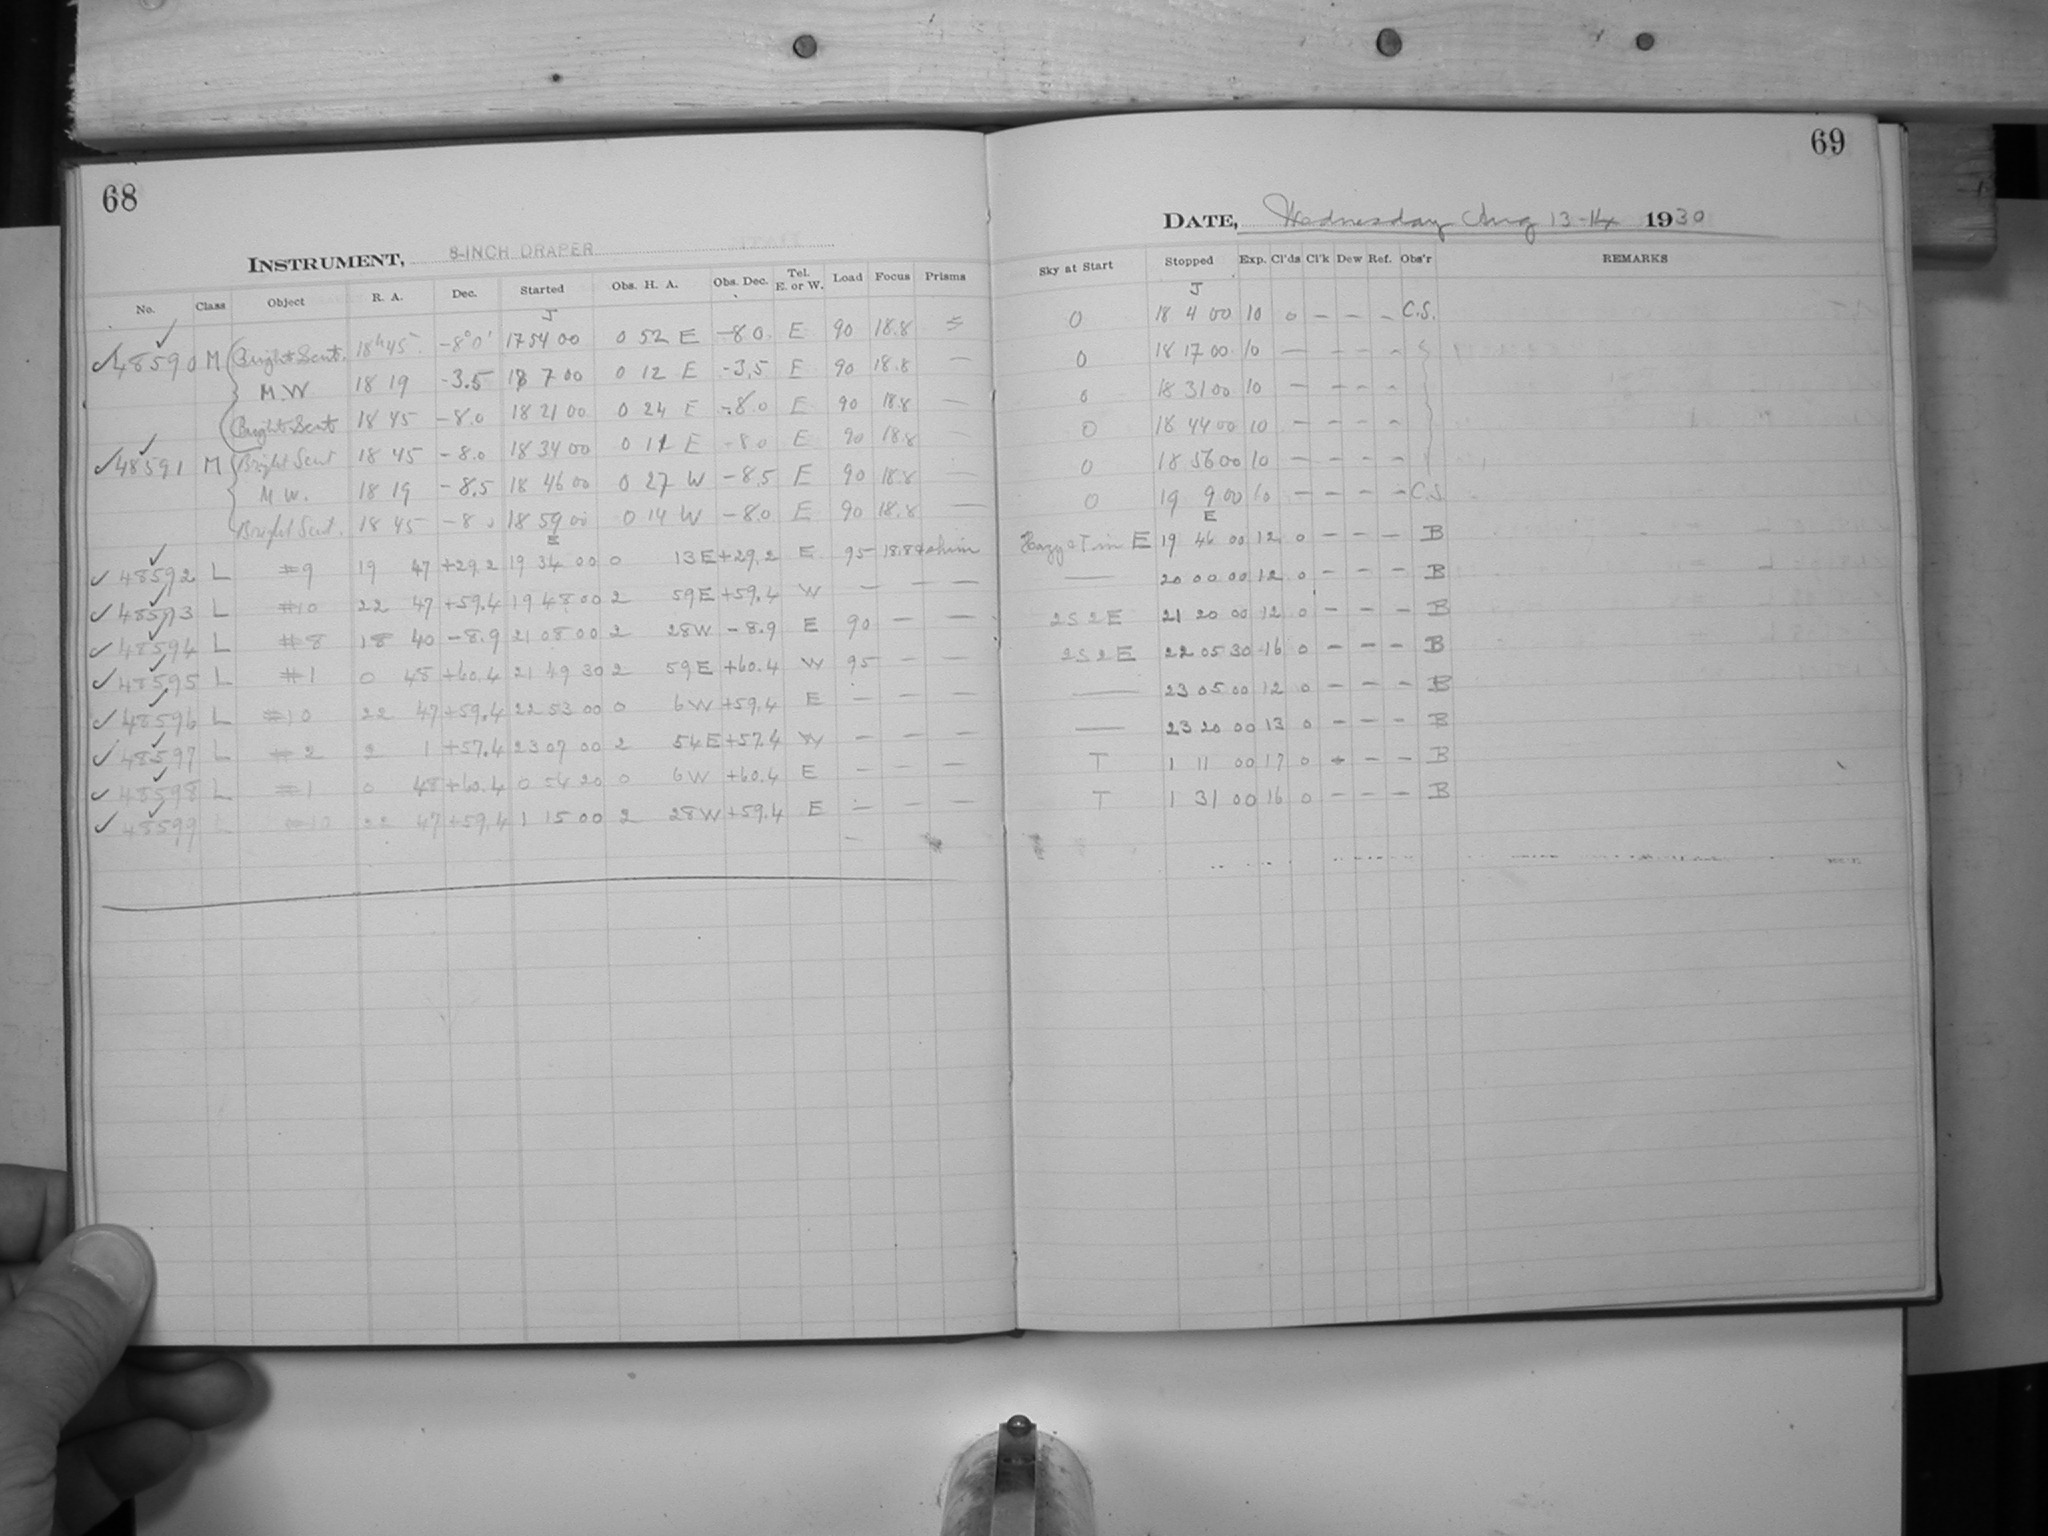 68
INSTRUMENT, 8-INCH DRAPER
No. Class Object R. A. Dec. Started Obs. H. A. Obs. Dec. Tel. E. or W. Load Focus Prisms
J
48590 M Bright Scut. 18h45 -8°0' 17 54 00 0 52 E -8 0 E 90 18.8
M.W 18 19 -3.5 18 7 00 0 12 E -3.5 E 90 18.8 —
Bright Scut 18 45 -8.0 18 21 00 0 24 E -8.0 E 90 18.8 —
48591 M Bright Scut 18 45 -8.0 18 34 00 0 11 E -8.0 E 90 18.8 —
M.W. 18 19 -8.5 18 46 00 0 27 W -8.5 E 90 18.8 —
Bright Scut. 18 45 -8 0 18 59 00 0 14 W -8.0 E 90 18.8 —
E
48592 L #9 19 47 +29.2 19 34 00 0 13 E +29.2 E 95 18.8
48593 L #10 22 47 +59.4 19 48 00 2 59 E +59.4 W — — —
48594 L #8 18 40 -8.9 21 08 00 2 28 W -8.9 E 90 — —
48595 L #1 0 48 +60.4 21 49 30 2 59 E +60.4 W 95 — —
48596 L #10 22 47 +59.4 22 53 00 0 6 W +59.4 E — — —
48597 L #2 2 1 +57.4 23 07 00 2 54 E +57.4 W — — —
48598 L #1 0 48 +60.4 0 54 20 0 6 W +60.4 E — — —
48599 L #10 22 47 +59.4 1 15 00 2 28 W +59.4 E — — —
69
DATE, Wednesday Aug 13-14 1930
Sky at Start Stopped Exp. Cl'ds Cl'k Dew Ref. Obs'r REMARKS
J
0 18 4 00 10 0 — — — C.S.
0 18 17 00 10 — — — —
0 18 31 00 10 — — — —
0 18 44 00 10 — — — —
0 18 56 00 10 — — — —
0 19 9 00 10 — — — — C.S
E
Hazy E 19 46 00 12 0 — — — B
— 20 00 00 12 0 — — — B
2S 2E 21 20 00 12 0 — — — B
2S 2E 22 05 30 16 0 — — — B
— 23 05 00 12 0 — — — B
— 23 20 00 13 0 — — — B
T 1 11 00 17 0 — — — B
T 1 31 00 16 0 — — — B